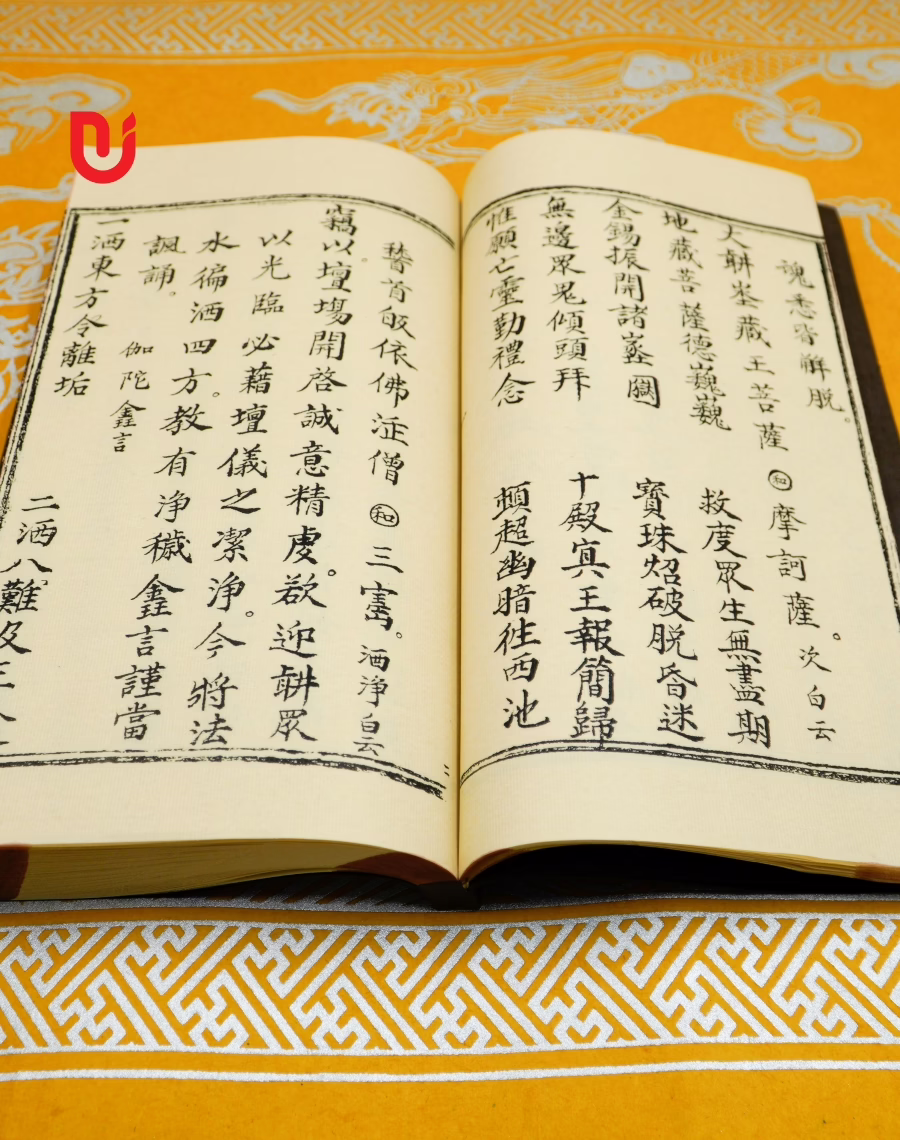 魂悉皆解脫。
大𦔻埊藏王菩薩㊞和 摩訶薩。次白云
地藏菩薩德巍巍 救度眾生無盡期
金錫振開諸關 寳珠炤破脫昏迷
無邊眾鬼傾頭拜 十殿冥王報簡歸
惟願亡靈勤禮念 頓超幽暗徃西池
稽首皈依佛法僧 和 三寶。洒淨白云
竊以。壇場開啓誠意精虔。欲迎𦔻眾
以光臨必藉壇儀之潔淨。今將法
水徧洒四方。教有淨穢言謹當
諷誦。 伽陀 鑫言
一洒東方令離垢 二洒八難及三